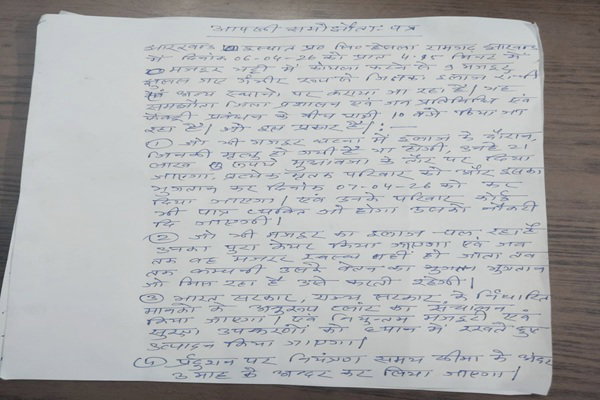 आपसी समझौता-पत्र
झारखण्ड इस्पात प्रा० लि० हेसला रामगढ़ झारखण्ड
में दिनांक 06-04-26 को प्रातः 4.15 मिनट में
मजदूर भट्टी में काम करने के मजदूर
झुलस गए गंभीर रूप से जिसका इलाज राँची
एवं अन्य स्थानों पर कराया जा रहा है। यह
समझौता जिला प्रशासन एवं जन प्रतिनिधि एवं
फैक्ट्री प्रबंधन के बीच रात्री 10 बजे किया जा
रहा है। जो इस प्रकार है।:—
① जो भी मजदूर घटना में इलाज के दौरान
जिनकी मृत्यु हो गयी है या होगी, उनके 21
लाख रूपये मुआवजा के तौर पर दिया
जाएगा, प्रत्येक मृतक परिवार को और इसका
भुगतान कर दिनांक 07-04-26 को कर
दिया जाएगा। एवं उनके परिवार कोई
भी पात्र व्यक्ति जो होगा उसको नौकरी
दि जाएगी।
② जो भी मजदूर का इलाज चल रहा है
उनका पुरा केयर किया जाएगा एवं जब
तक वह मजदूर स्वस्थ नहीं हो जाता तब
तक कम्पनी उसके वेतन का भुगतान
जो मिल रहा है उसे करती रहेगी।
③ भारत सरकार, राज्य सरकार के निर्धारित
मानकों के अनुरूप प्लांट का संचालन
किया जाएगा। एवं नियुनतम मजदूरी एवं
सुरक्षा उपकरणों को ध्यान में रखते हुए
उत्पादन किया जाएगा।
प्रदुशन पर नियंत्रण समय सीमा के अंदर
3 माह के अन्दर कर लिया जाएगा।